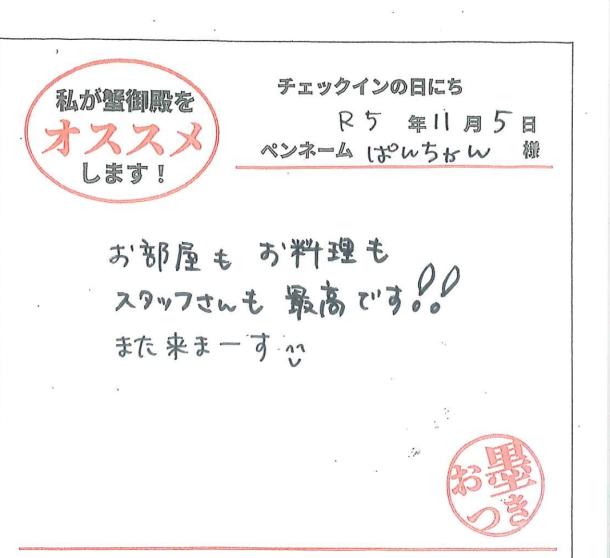 私が蟹御殿を
オススメ
します！
チェックインの日にち
R5 年 11 月 5 日
ペンネーム ぱんちゃん 様
お部屋も お料理も
スタッフさんも 最高です!!
また来まーす
お墨
つき